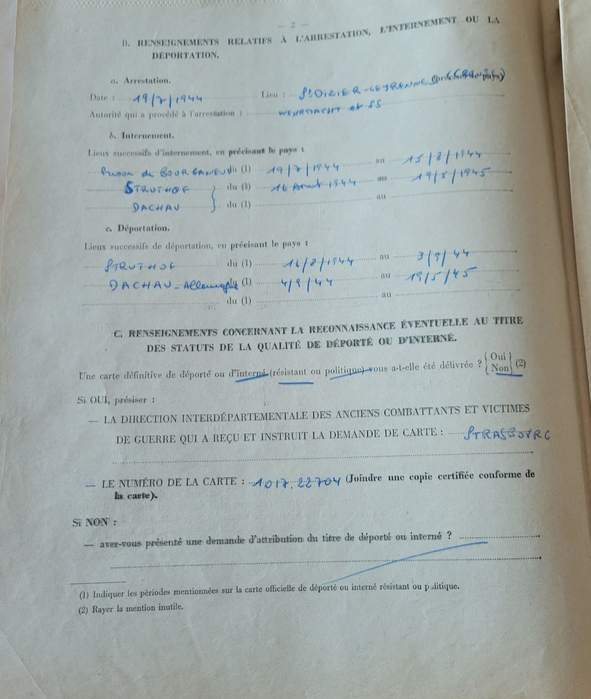 — 2 —
B. RENSEIGNEMENTS RELATIFS À L'ARRESTATION, L'INTERNEMENT OU LA
DÉPORTATION.
a. Arrestation.
Date : 19/7/1944 Lieu : St DIZIER-LEYRENNE
Autorité qui a procédé à l'arrestation : WEHRMACHT et SS
b. Internement.
Lieux successifs d'internement, en précisant le pays :
Prison de BOURGANEUF du (1) 19/7/1944 au 15/8/1944
STRUTHOF du (1) 16 Aout 1944 au 19/5/1945
DACHAU du (1) au
c. Déportation.
Lieux successifs de déportation, en précisant le pays :
STRUTHOF du (1) 16/8/1944 au 3/9/44
DACHAU - Allemagne du (1) 4/9/44 au 19/5/45
du (1) au
C. RENSEIGNEMENTS CONCERNANT LA RECONNAISSANCE ÉVENTUELLE AU TITRE
DES STATUTS DE LA QUALITÉ DE DÉPORTÉ OU D'INTERNÉ.
Une carte définitive de déporté ou d'interné (résistant ou politique) vous a-t-elle été délivrée ? { Oui } { Non } (2)
Si OUI, présiser :
— LA DIRECTION INTERDÉPARTEMENTALE DES ANCIENS COMBATTANTS ET VICTIMES
DE GUERRE QUI A REÇU ET INSTRUIT LA DEMANDE DE CARTE : STRASBOURG
— LE NUMÉRO DE LA CARTE : 1017.22704 (Joindre une copie certifiée conforme de
la carte).
Si NON :
— avez-vous présenté une demande d'attribution du titre de déporté ou interné ?
(1) Indiquer les périodes mentionnées sur la carte officielle de déporté ou interné résistant ou politique.
(2) Rayer la mention inutile.